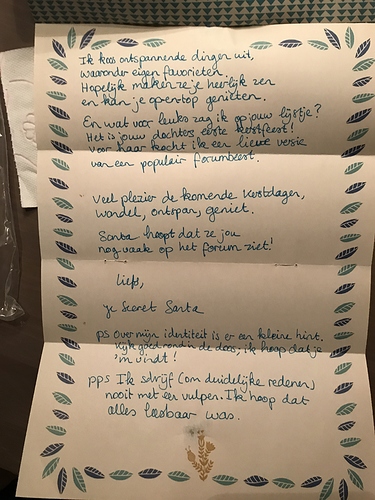 Ik koos ontspannende dingen uit,
waaronder eigen favorieten.
Hopelijk maken ze je heerlijk zen
en kan je opentop genieten.
En wat voor leuks zag ik op jouw lijstje?
Het is jouw dochters eerste kerstfeest!
Voor haar kocht ik een lieve versie
van een populair forumbeest.
Veel plezier de komende kerstdagen,
wandel, ontspan, geniet.
Santa hoopt dat ze jou
nog vaak op het forum ziet!
Liefs,
je Secret Santa
ps Over mijn identiteit is er een kleine hint.
Kijk goed rond in de doos, ik hoop dat je
'm vindt!
pps Ik schrijf (om duidelijke redenen)
nooit met een vulpen. Ik hoop dat
alles leesbaar was.